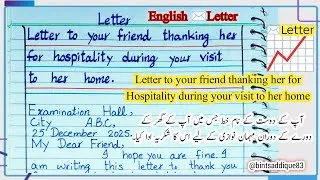 Letter
English Letter
Letter
Letter to your friend thanking her
for hospitality during your visit
to her home.
Letter to your friend thanking her for
Hospitality during your visit to her home
آپ کے دوست کے نام خط جس میں آپ کے گھر کے
دورے کے دوران مہمان نوازی کے لیے اس کا شکریہ ادا کیا۔
Examination Hall,
City A.B.C,
25 December 2025.
My Dear Friend,
I hope you are fine. I
am writing this letter to thank you
@bintsaddique83